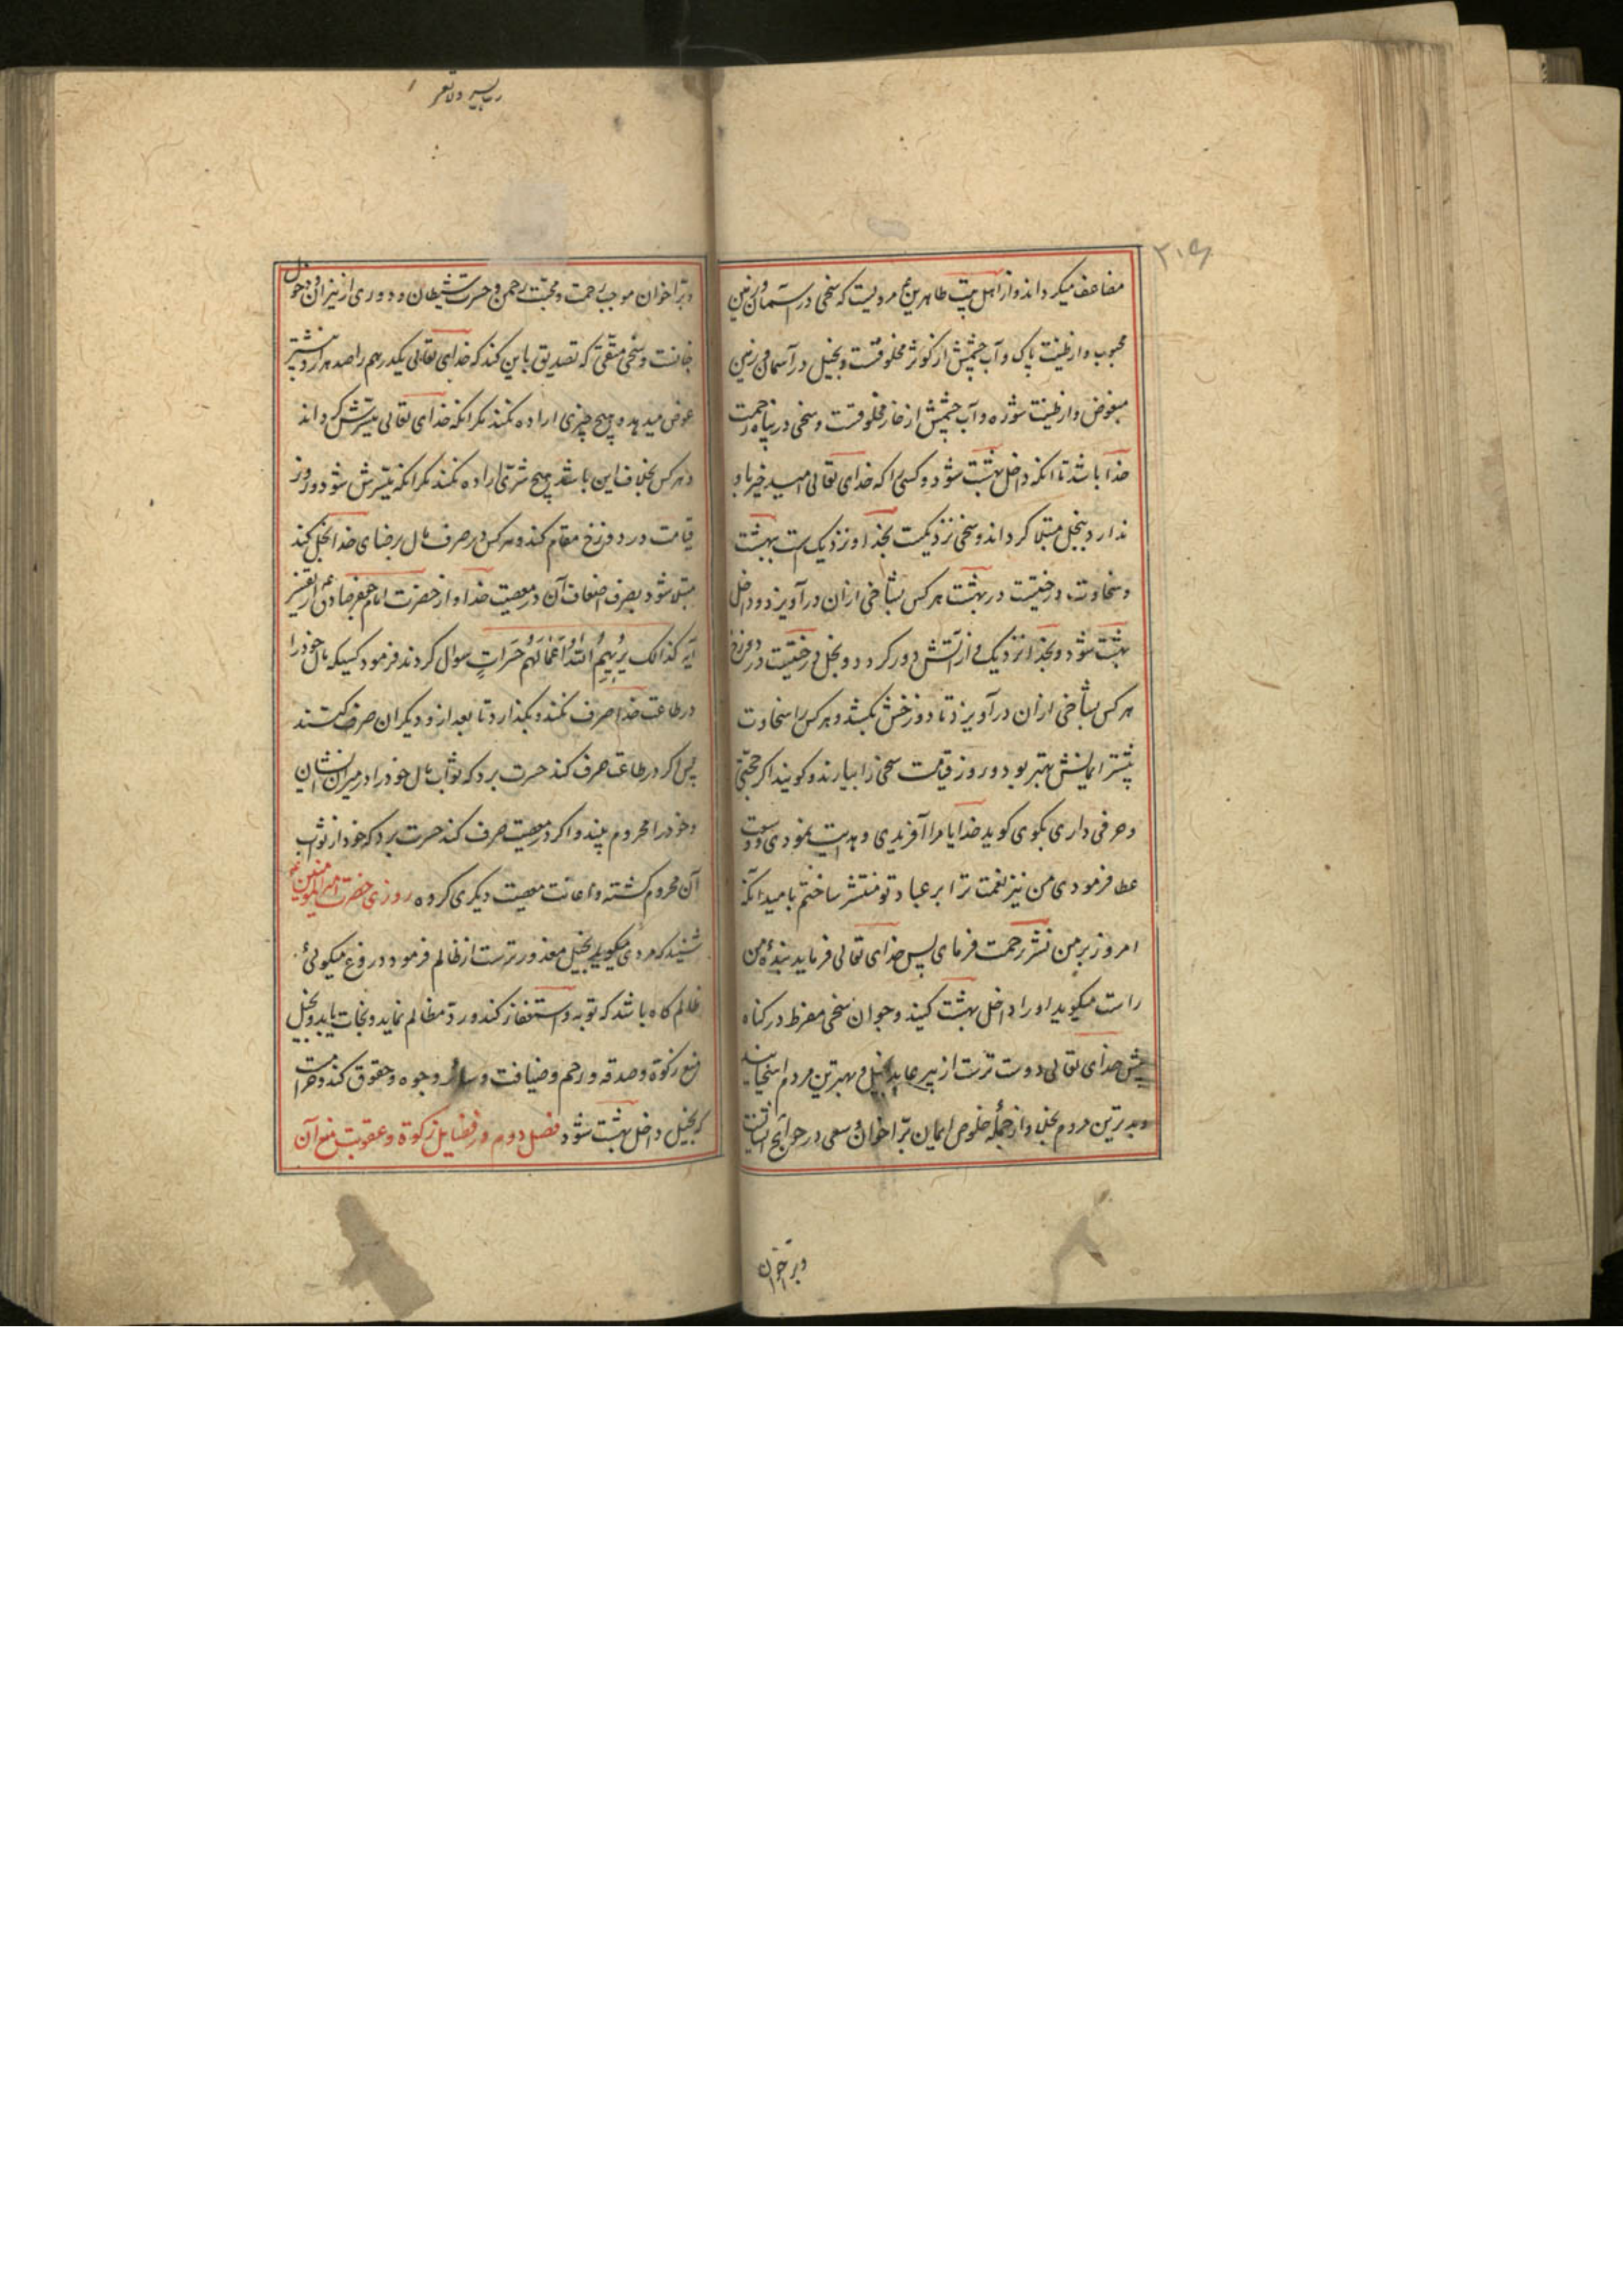 ۲۰۹
مضاعف میکرداند و از اهل بیت طاهرین ع مرویست که سخی در آسمان و زمین
محبوب و از طینت پاک و آب چشمش از کوثر مخلوقست و بخیل در آسمان و زمین
مبغوض و از طینت شوره و آب چشمش از خار مخلوقست و سخی در پناه رحمت
خدا باشد تا انکه داخل بهشت شود و کسی را که خدای تعالی امید خیر باو
ندارد ببخل مبتلا کرداند و سخی نزدیکست بخدا و نزدیک است ببهشت
و سخاوت درختیست در بهشت هر کس بشاخی ازان درآویزد داخل
بهشت شود و بخدا نزدیک و از آتش دور کردد و بخل درختیست در دوزخ
هر کس بشاخی ازان درآویزد تا دوزخش بکشد و هر کس را سخاوت
بیشتر ایمانش بهتر بود و روز قیامت سخی را بیارند و کویند اکر حجتی
و حرفی داری بکوی کوید خدایا مرا آفریدی و هدایت نمودی و وسعت
عطا فرمودی من نیز نعمت ترا بر عباد تو منتشر ساختم بامید انکه
امروز بر من نشر رحمت فرمای پس خدای تعالی فرماید بندهٔ من
راست میکوید او را داخل بهشت کنید و جوان سخی مفرط در کناه
پیش خدای تعالی دوست ترست از پیر عابد بخیل و بهترین مردم اسخیایند
و بدترین مردم بخلا و از جملهٔ خلوص ایمان برّ اخوان و سعی در حوایج ایشانست
و بر اخوان
و برّ اخوان موجب رحمت و محبت رحمن و حسرت شیطان و دوری از نیران و دخول
جنانست و سخی متقی که تصدیق باین کند که خدای تعالی یکدرهم را صد هزار و بیشتر
عوض میدهد و هیچ چیزی اراده نکند مکر انکه خدای تعالی میسّرش کرداند
و هر کس بخلاف این باشد هیچ شرّی اراده نکند مکر انکه میسّرش شود و روز
قیامت در دوزخ مقام کند و هر کس در صرف مال برضای خدا بخل کند
مبتلا شود بصرف اضعاف آن در معصیت خدا و از حضرت امام جعفر صادق ع از تفسیر
آیه کذالک یریهم الله اعمالهم حسرات سوال کردند فرمود کسیکه مال خود را
در طاعت خدا صرف نکند و بکذارد تا بعد ازو دیکران صرف کنند
پس اکر در طاعت صرف کند حسرت برد که ثواب مال خود را در میزان ایشان
و خود را محروم بیند و اکر در معصیت صرف کند حسرت برد که خود از ثواب
آن محروم کشته و اعانت معصیت دیکری کرده روزی حضرت امیرالمومنین ع
شنید که مردی میکوید بخیل معذورترست از ظالم فرمود دروغ میکوئی
ظالم کاه باشد که توبه و استغفار کند و ردّ مظالم نماید و نجات یابد و بخیل
منع زکوة و صدقه و رحم و ضیافت و سایر وجوه و حقوق کند و حرامست
که بخیل داخل بهشت شود فصل دوم در فضایل زکوة و عقوبت منع آن